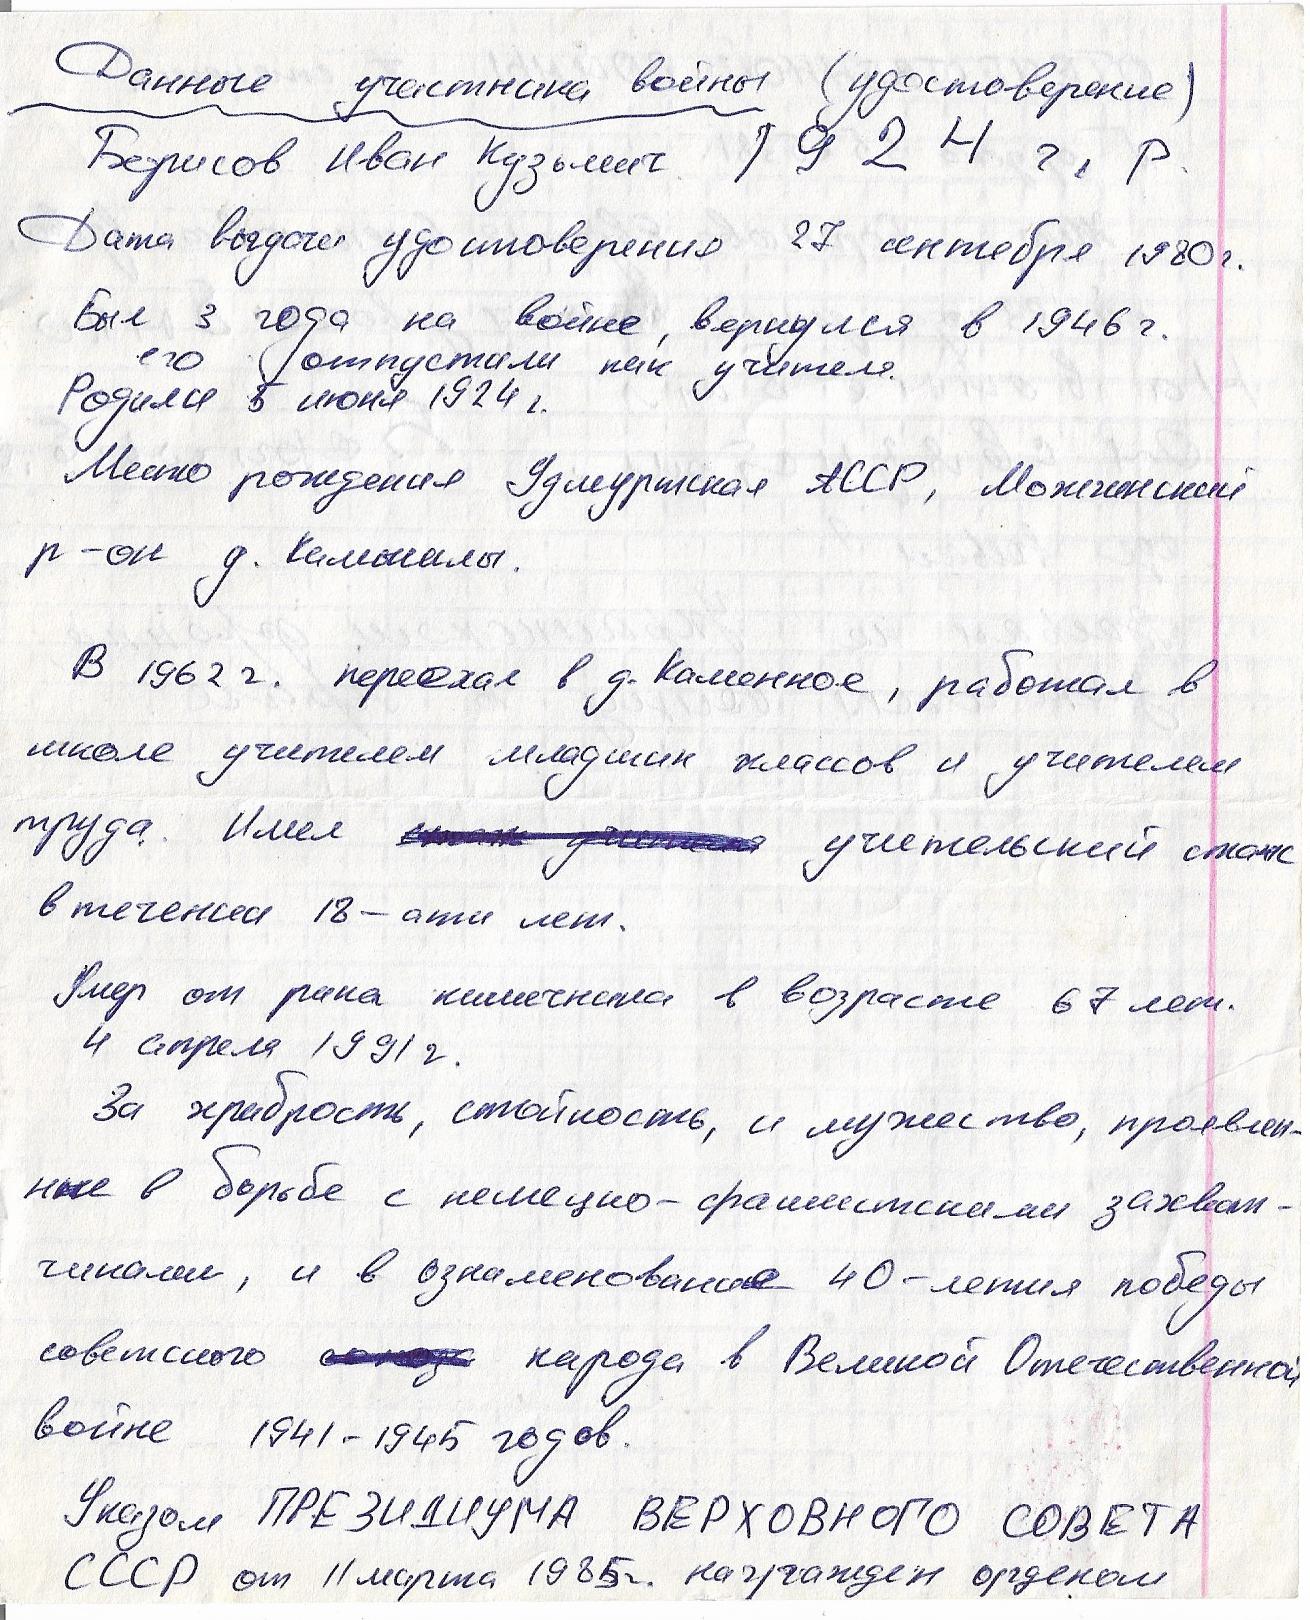 Данные участника войны (удостоверение)
Борисов Иван Кузьмич 1924 г. р.
Дата выдачи удостоверения 27 сентября 1980г.
Был 3 года на войне, вернулся в 1946г.
его отпустили как учителя.
Родился 5 июня 1924г.
Место рождения Удмуртская АССР, Можгинский
р-он д.
В 1962г. переехал в д. Каменное, работал в
школе учителем младших классов и учителем
труда. Имел учительский стаж
в течении 18-ати лет.
Умер от рака кишечника в возрасте 67 лет.
4 апреля 1991г.
За храбрость, стойкость, и мужество, проявлен-
ные в борьбе с немецко-фашистскими захват-
чиками, и в ознаменование 40-летия победы
советского народа в Великой Отечественной
войне 1941-1945 годов.
Указом ПРЕЗИДИУМА ВЕРХОВНОГО СОВЕТА
СССР от 11 марта 1985г. награжден орденом